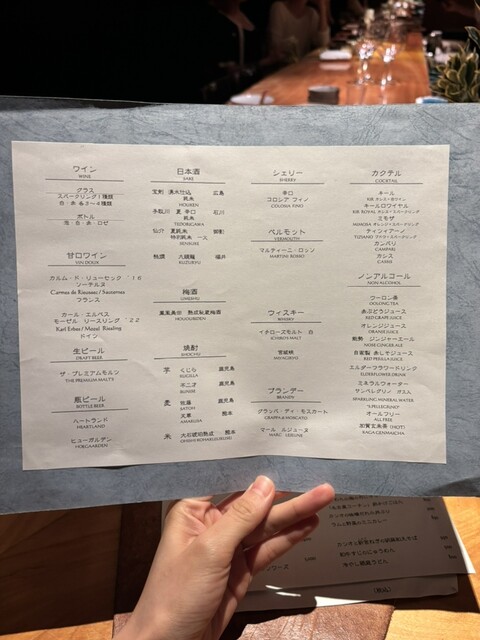 ワイン
WINE
グラス
スパークリング1種類
白・赤 各3〜4種類
ボトル
泡・白・赤・ロゼ
甘口ワイン
VIN DOUX
カルム・ド・リューセック '18
ソーテルヌ
Carmes de Rieussec / Sauternes
フランス
カール・エルベス
モーゼル リースリング '22
Karl Erbes / Mosel Riesling
ドイツ
生ビール
DRAFT BEER
ザ・プレミアムモルツ
THE PREMIUM MALT'S
瓶ビール
BOTTLE BEER
ハートランド
HEARTLAND
ヒューガルデン
HOEGAARDEN
日本酒
SAKE
宝剣 湧水仕込 広島
純米
HOUKEN
手取川 夏 辛口 石川
純米
TEDORIGAWA
仙介
特別純米
SENSUKE
九頭龍 福井
KUZURYU
梅酒
UMESHU
鳳凰美田 熟成秘蔵梅酒
HOUOUBIDEN
焼酎
SHOCHU
芋 くじら 鹿児島
KUZILLA
不二才 鹿児島
BUNISE
麦 佐藤 鹿児島
SATOH
天草 熊本
AMAKUSA
米 大石琥珀熟成 熊本
シェリー
SHERRY
辛口
コロシア フィノ
COLOSIA FINO
ベルモット
VERMOUTH
マルティーニ・ロッソ
MARTINI ROSSO
ウィスキー
WHISKY
イチローズモルト 白
ICHIRO'S MALT
宮城峡
MIYAGIKYO
ブランデー
BRANDY
グラッパ・ディ・モスカート
GRAPPA di MOSCATO
マール エジューヌ
MARC LEJEUNE
カクテル
COCKTAIL
キール
KIR カシス+白ワイン
キールロワイヤル
KIR ROYAL カシス+スパークリング
ミモザ
MIMOSA オレンジ+スパークリング
ティツィアーノ
TIZIANO ブドウ+スパークリング
カンパリ
CAMPARI
カシス
CASSIS
ノンアルコール
NON ALCOHOL
ウーロン茶
OOLONG TEA
赤ぶどうジュース
RED GRAPE JUICE
オレンジジュース
ORANGE JUICE
能勢 ジンジャーエール
NOSE GINGER ALE
自家製 赤しそジュース
RED PERILLA JUICE
エルダーフラワードリンク
ELDERFLOWER DRINK
ミネラルウォーター
サンペレグリノ ガス入
SPARKLING MINERAL WATER
"S.PELLEGRINO"
オールフリー
ALL FREE
加賀玄米茶 (HOT)
KAGA GENMAICHA
冷やし
(税込)